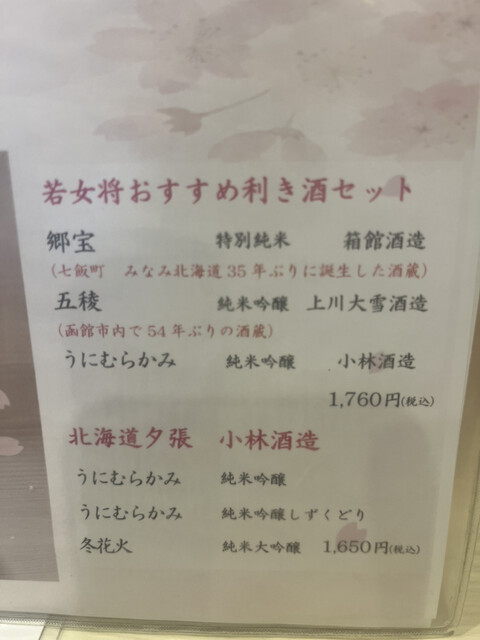 若女将おすすめ利き酒セット
郷宝 特別純米 箱館酒造
(七飯町 みなみ北海道35年ぶりに誕生した酒蔵)
五稜 純米吟醸 上川大雪酒造
(函館市内で54年ぶりの酒蔵)
うにむらかみ 純米吟醸 小林酒造
1,760円(税込)
北海道夕張 小林酒造
うにむらかみ 純米吟醸
うにむらかみ 純米吟醸しずくどり
冬花火 純米大吟醸 1,650円(税込)